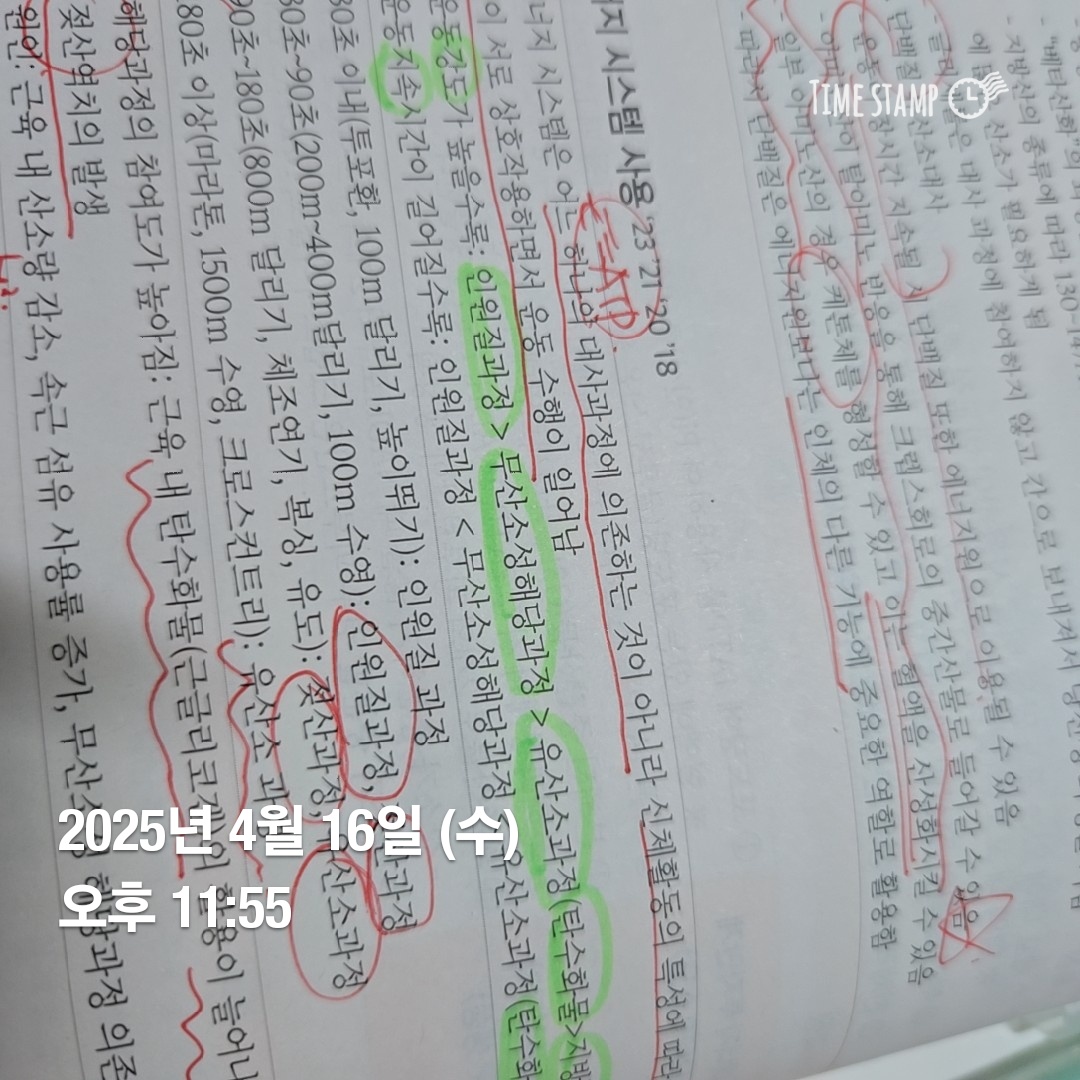 TIME STAMP
에
- 지방산의 종류에 따라 130-147
산소가 필요하게 됨
대사 과정에 참여하지 않고 간으로 보내져서 당신생
산소대사
단백질
운동 장시간 지속될 시 단백질 또한 에너지원으로 이용될 수 있음
탈아미노 반응을 통해 크렙스회로의 중간산물로 들어갈 수 있음
- 일부 아미노산의 경우 케톤체를 형성할 수 있고 이는 혈액을 산성화시킬 수 있음
따라서 단백질은 에너지원보다는 인체의 다른 기능에 중요한 역할로 활용함
너지 시스템 사용 '23 '21 '20 '18
=ATP
너지 시스템은 어느 하나의 대사과정에 의존하는 것이 아니라 신체활동의 특성에 따라
이 서로 상호작용하면서 운동 수행이 일어남
운동강도가 높을수록: 인원질과정 > 무산소성해당과정 > 유산소과정(탄수화물>지방
운동지속시간이 길어질수록: 인원질과정 < 무산소성해당과정 유산소과정(탄수화
30초 이내(투포환, 100m 달리기, 높이뛰기): 인원질 과정
30초~90초(200m~400m달리기, 100m 수영): 인원질과정, 과정
90초~180초(800m 달리기, 체조연기, 복싱, 유도): 젖산과정, 산소과정
180초 이상(마라톤, 1500m 수영, 크로스컨트리): 유산소 과
해당과정의 참여도가 높아짐: 근육 내 탄수화물(근글리코겐) 활용이 늘어나
젖산역치의 발생
원인: 근육 내 산소량 감소, 속근 섬유 사용률 증가, 무산소 해당과정 의존
2025년 4월 16일 (수)
오후 11:55